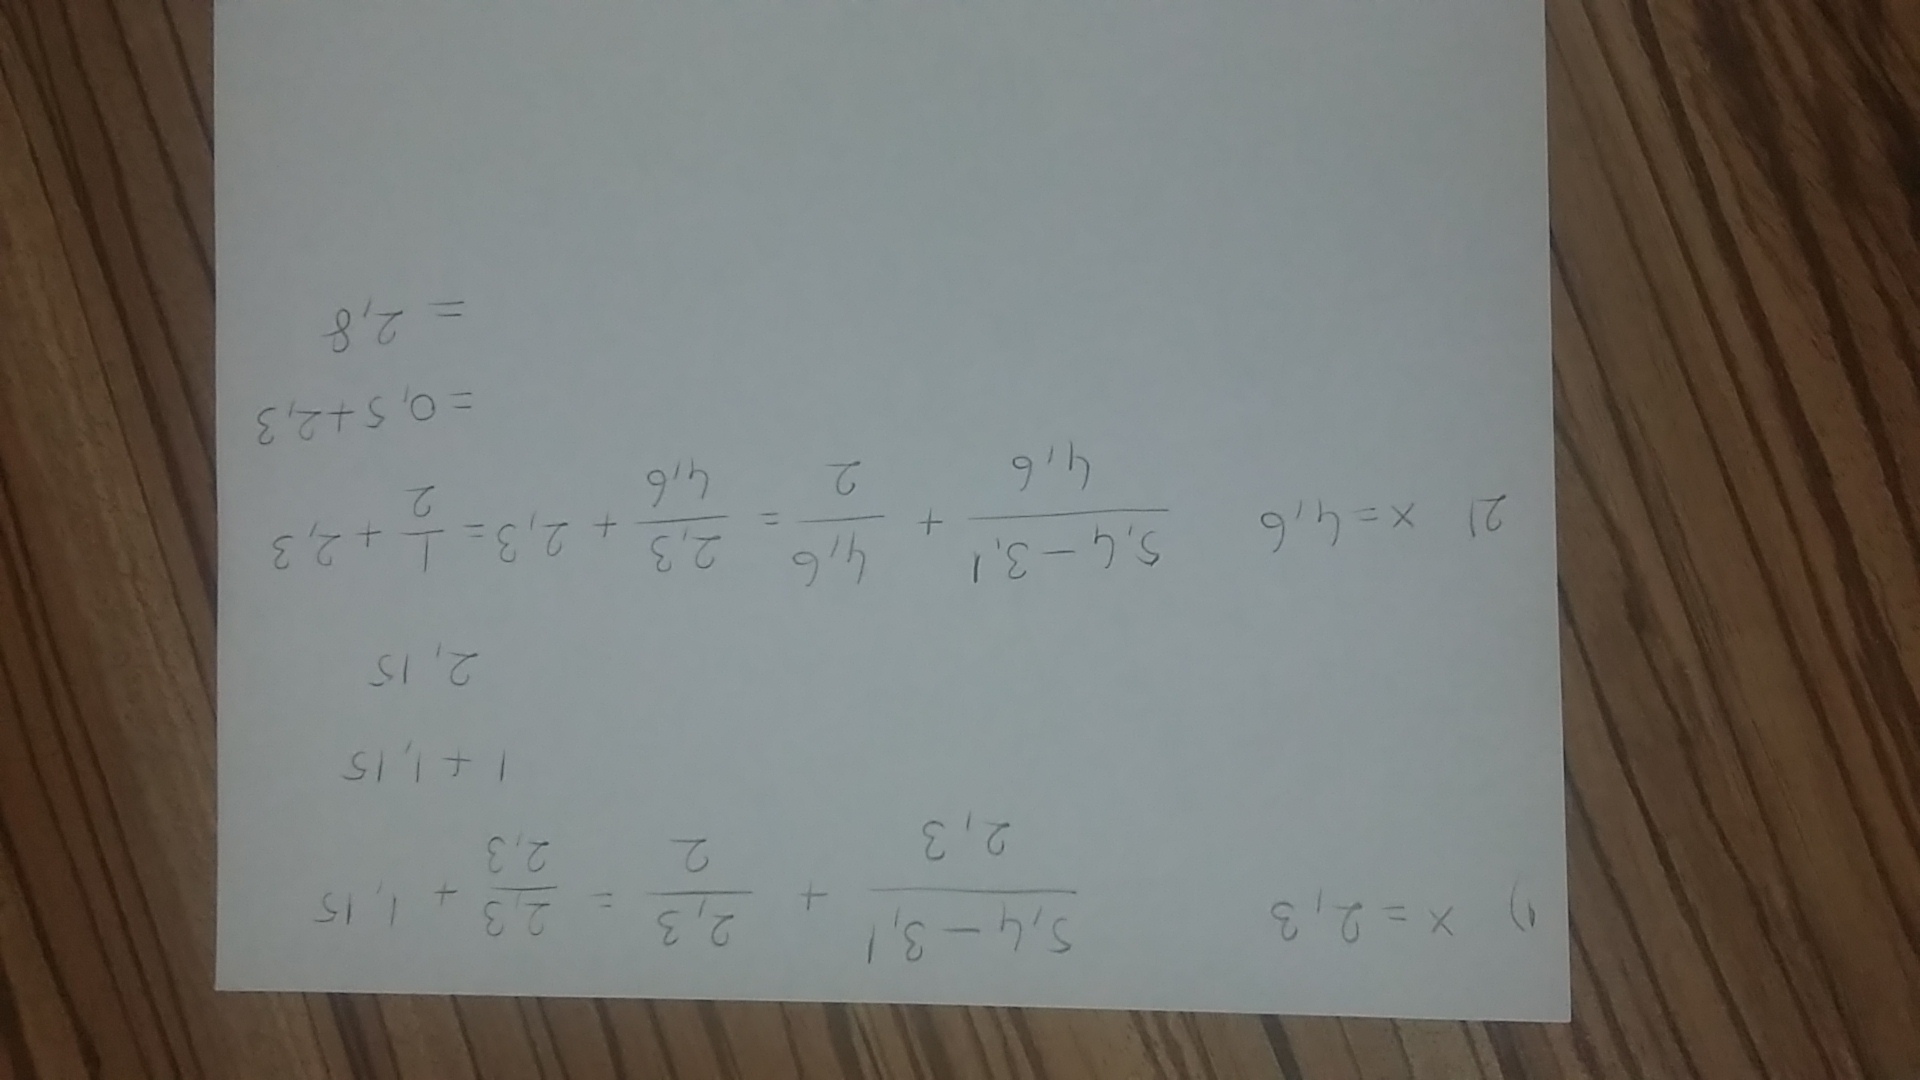 1) x = 2,3 (5,4 – 3,1)/2,3 + 2,3/2 = 2,3/2,3 + 1,15
1 + 1,15
2,15
2) x = 4,6 (5,4 – 3,1)/4,6 + 4,6/2 = 2,3/4,6 + 2,3 = 1/2 + 2,3
= 0,5 + 2,3
= 2,8